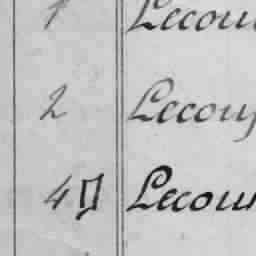 1 Lecou
2 Lecou
4 Lecou